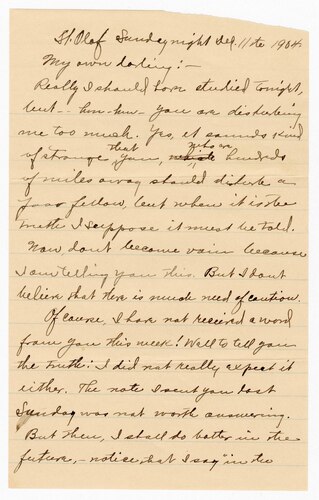 St. Olaf Sunday night Dec. 11th 1904.
My own darling:—
Really I should have studied tonight,
but — hm-hm — you are disturbing
me too much. Yes, it sounds kind
of strange that you, who are hundreds
of miles away should disturb a
poor fellow, but when it is the
truth I suppose it must be told.
Now dont become vain because
I am telling you this. But I dont
believe that there is much need of caution.
Of course, I have not received a word
from you this week! Well to tell you
the truth: I did not really expect it
either. The note I sent you last
Sunday was not worth answering.
But then, I shall do better in the
future, - notice, that I say "in the